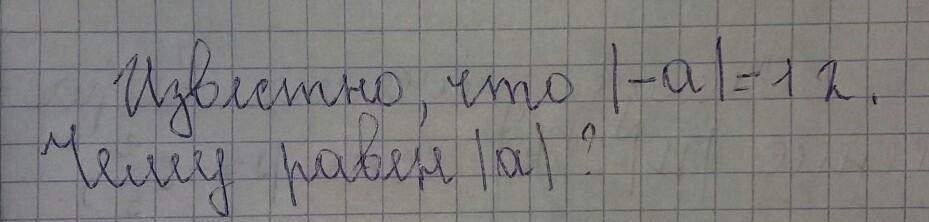 Известно, что |-a|=12.
Чему равен |a|?